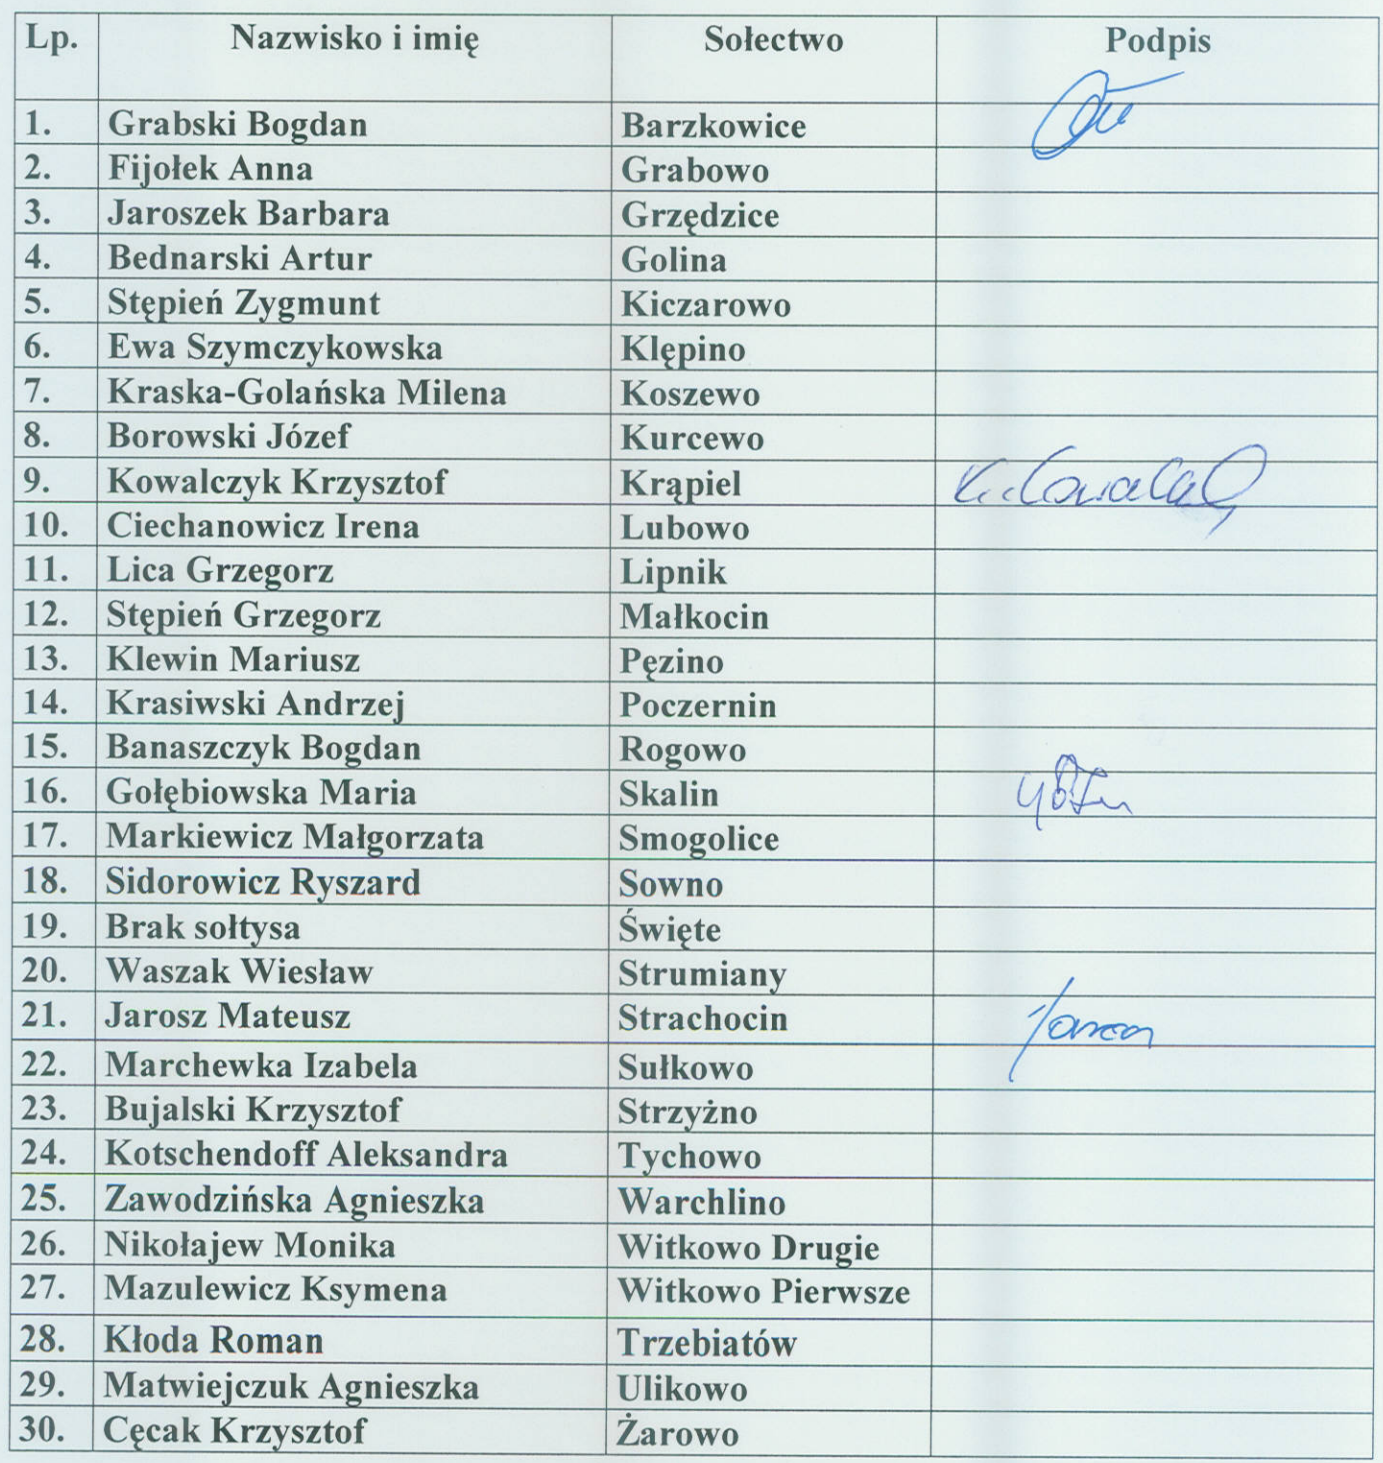 Lp. Nazwisko i imię Sołectwo Podpis
1. Grabski Bogdan Barzkowice
2. Fijołek Anna Grabowo
3. Jaroszek Barbara Grzędzice
4. Bednarski Artur Golina
5. Stępień Zygmunt Kiczarowo
6. Ewa Szymczykowska Klępino
7. Kraska-Golańska Milena Koszewo
8. Borowski Józef Kurcewo
9. Kowalczyk Krzysztof Krąpiel
10. Ciechanowicz Irena Lubowo
11. Lica Grzegorz Lipnik
12. Stępień Grzegorz Małkocin
13. Klewin Mariusz Pęzino
14. Krasiwski Andrzej Poczernin
15. Banaszczyk Bogdan Rogowo
16. Gołębiowska Maria Skalin
17. Markiewicz Małgorzata Smogolice
18. Sidorowicz Ryszard Sowno
19. Brak sołtysa Święte
20. Waszak Wiesław Strumiany
21. Jarosz Mateusz Strachocin
22. Marchewka Izabela Sułkowo
23. Bujalski Krzysztof Strzyżno
24. Kotschendoff Aleksandra Tychowo
25. Zawodzińska Agnieszka Warchlino
26. Nikołajew Monika Witkowo Drugie
27. Mazulewicz Ksymena Witkowo Pierwsze
28. Kłoda Roman Trzebiatów
29. Matwiejczuk Agnieszka Ulikowo
30. Cęcak Krzysztof Żarowo